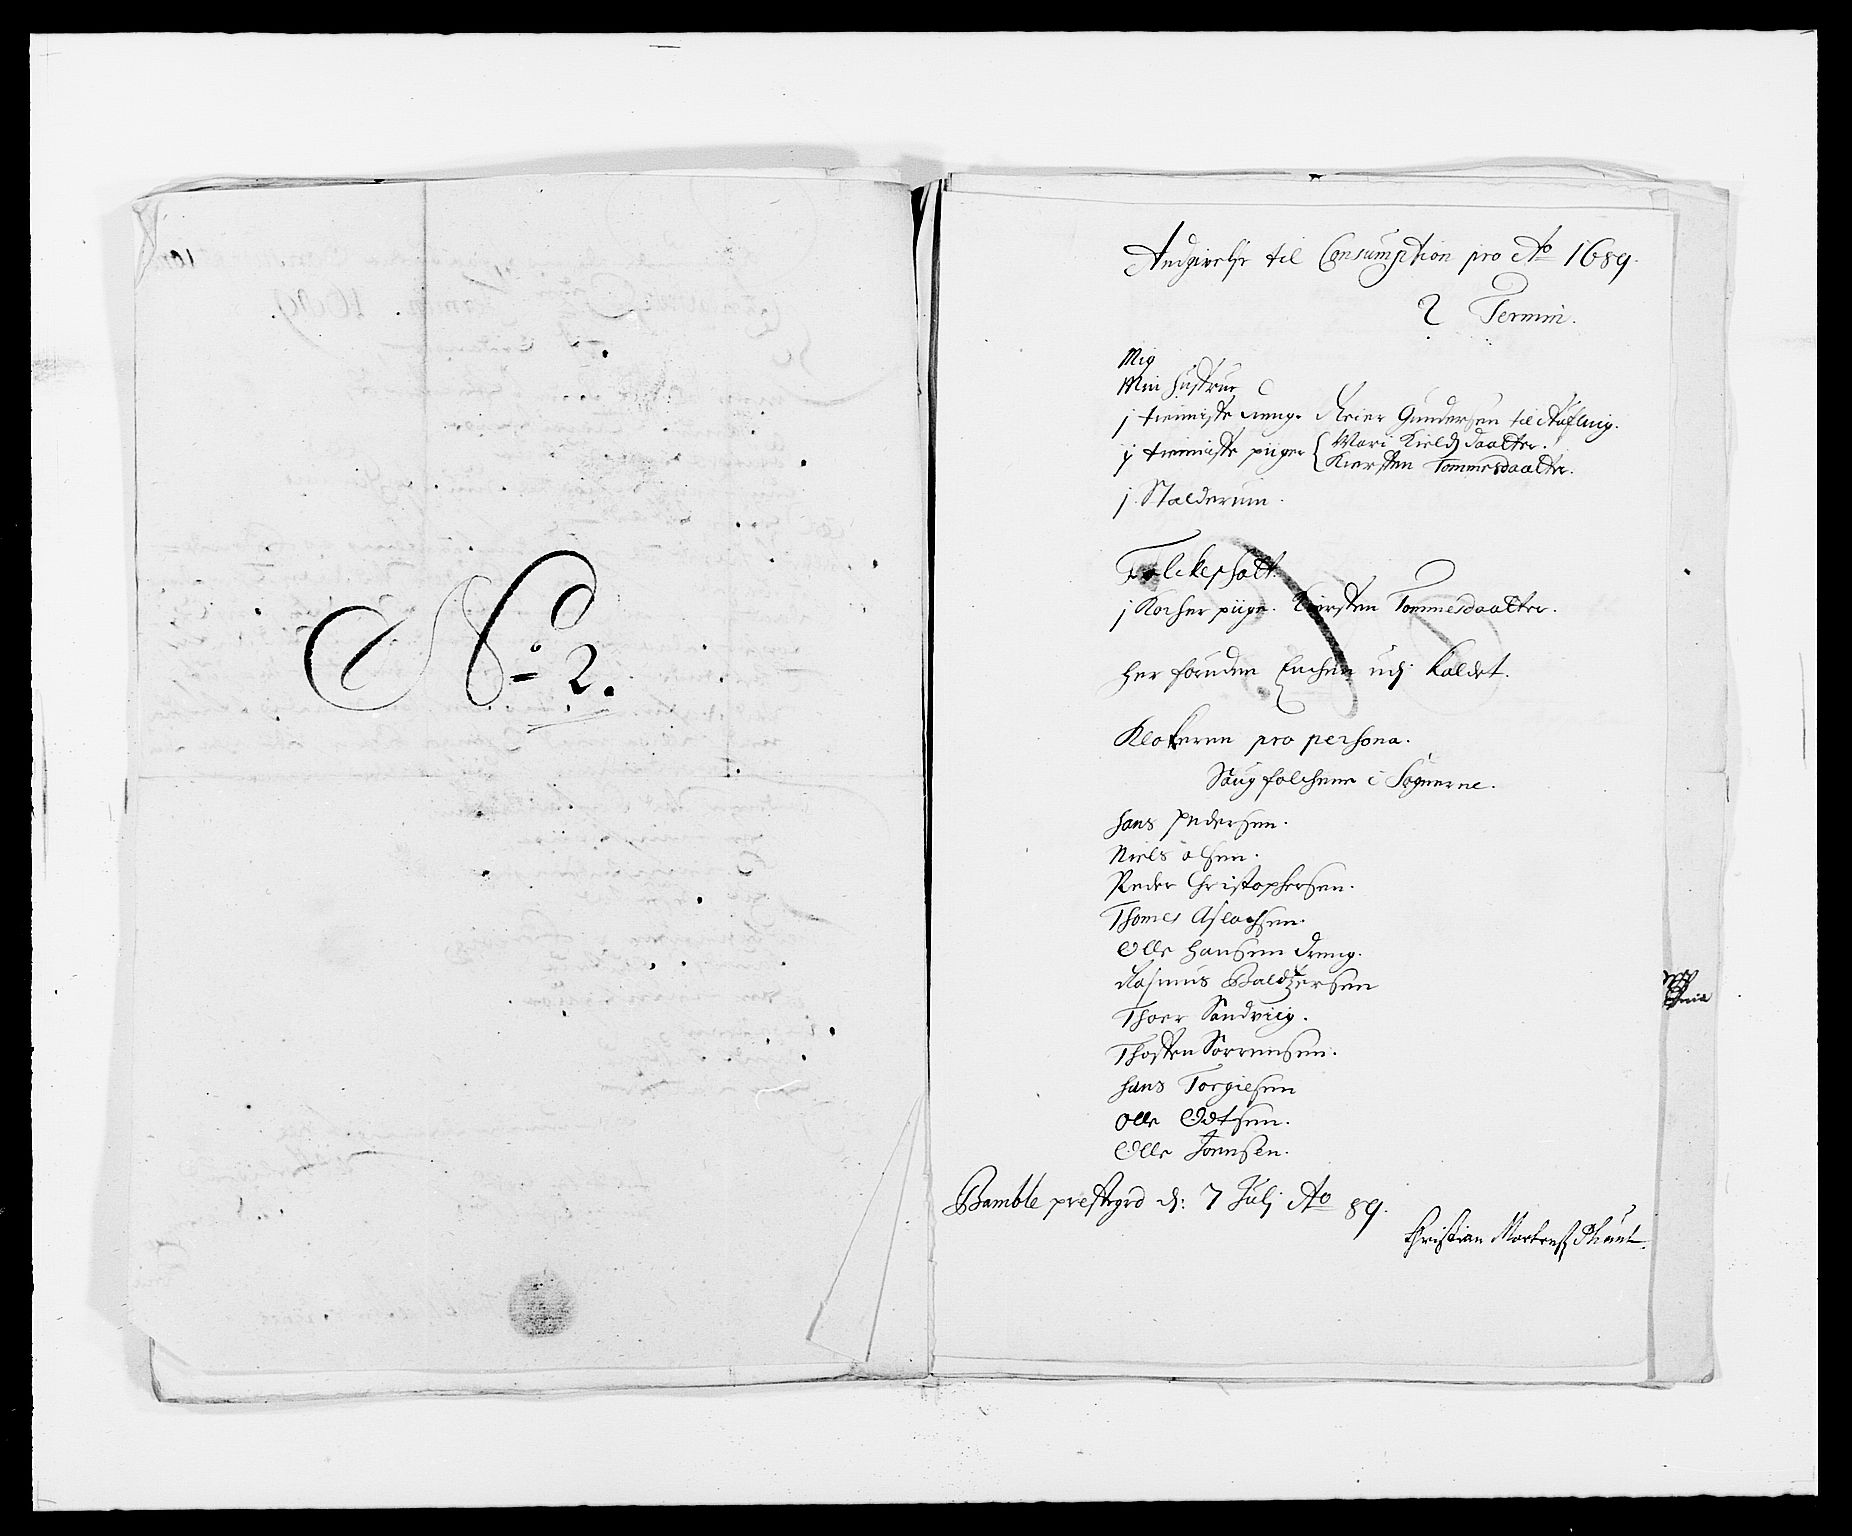 No 2.
Andgivelse til Consumption pro Ao 1689.
2 Termin.
Mig
Min hustrue
j tienniste dreng. Reier Gundersen til Aufling.
ij tienniste piiger { Mari Kields daatter.
Kiersten Tommesdaatter.
j. Stalderum.
Folckeskatt.
j Kocher piige. Kiersten Tommesdaatter.
her foruden Enchen udj Kaldet.
Klokeren pro persona.
Saugfolchene i Sognerne.
hans Pedersen.
Niels olsen.
Peder Christophersen.
Thomes Aslachsen.
Olle Hansen dreng.
Rasmus Baldtzersen
Thoer Sandviig.
Thosten Sørrensen.
hans Torgiesen
Olle Odtsen.
Olle Jonnsen.
Bamble prestegrd d: 7 Julj Ao 89.
Christian Mortens